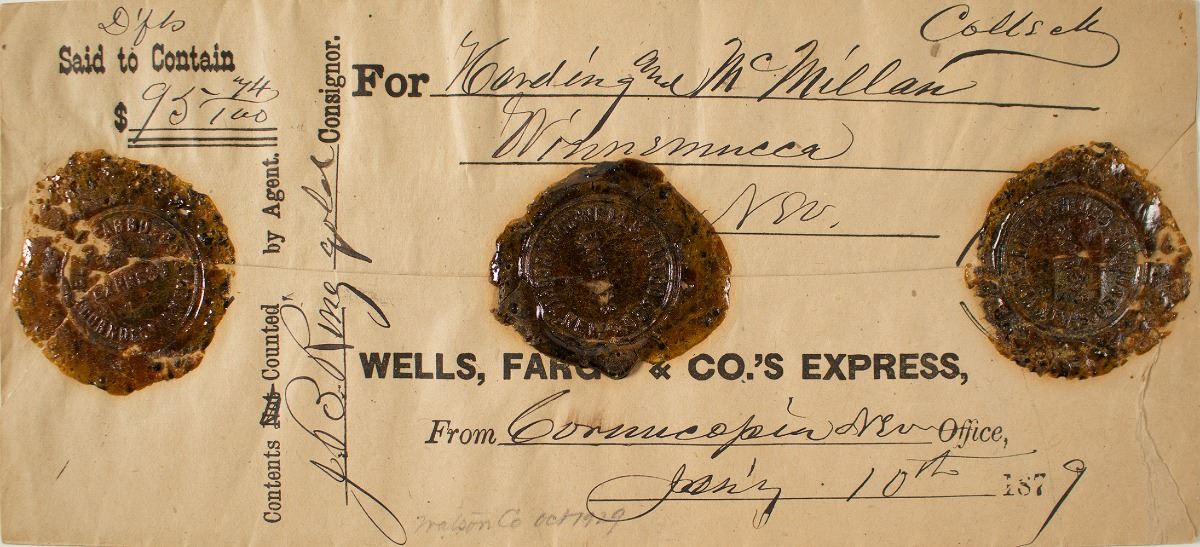 D'fts
Said to Contain
$ 95 74/100
Contents Not Counted by Agent.
Consignor.
Colls ck
For Harding and McMillan
Winnemucca
Nev.
WELLS, FARGO & CO.'S EXPRESS,
From Cornucopia Nev Office,
Jan'y 10th 1879
Watson Co Oct 1929